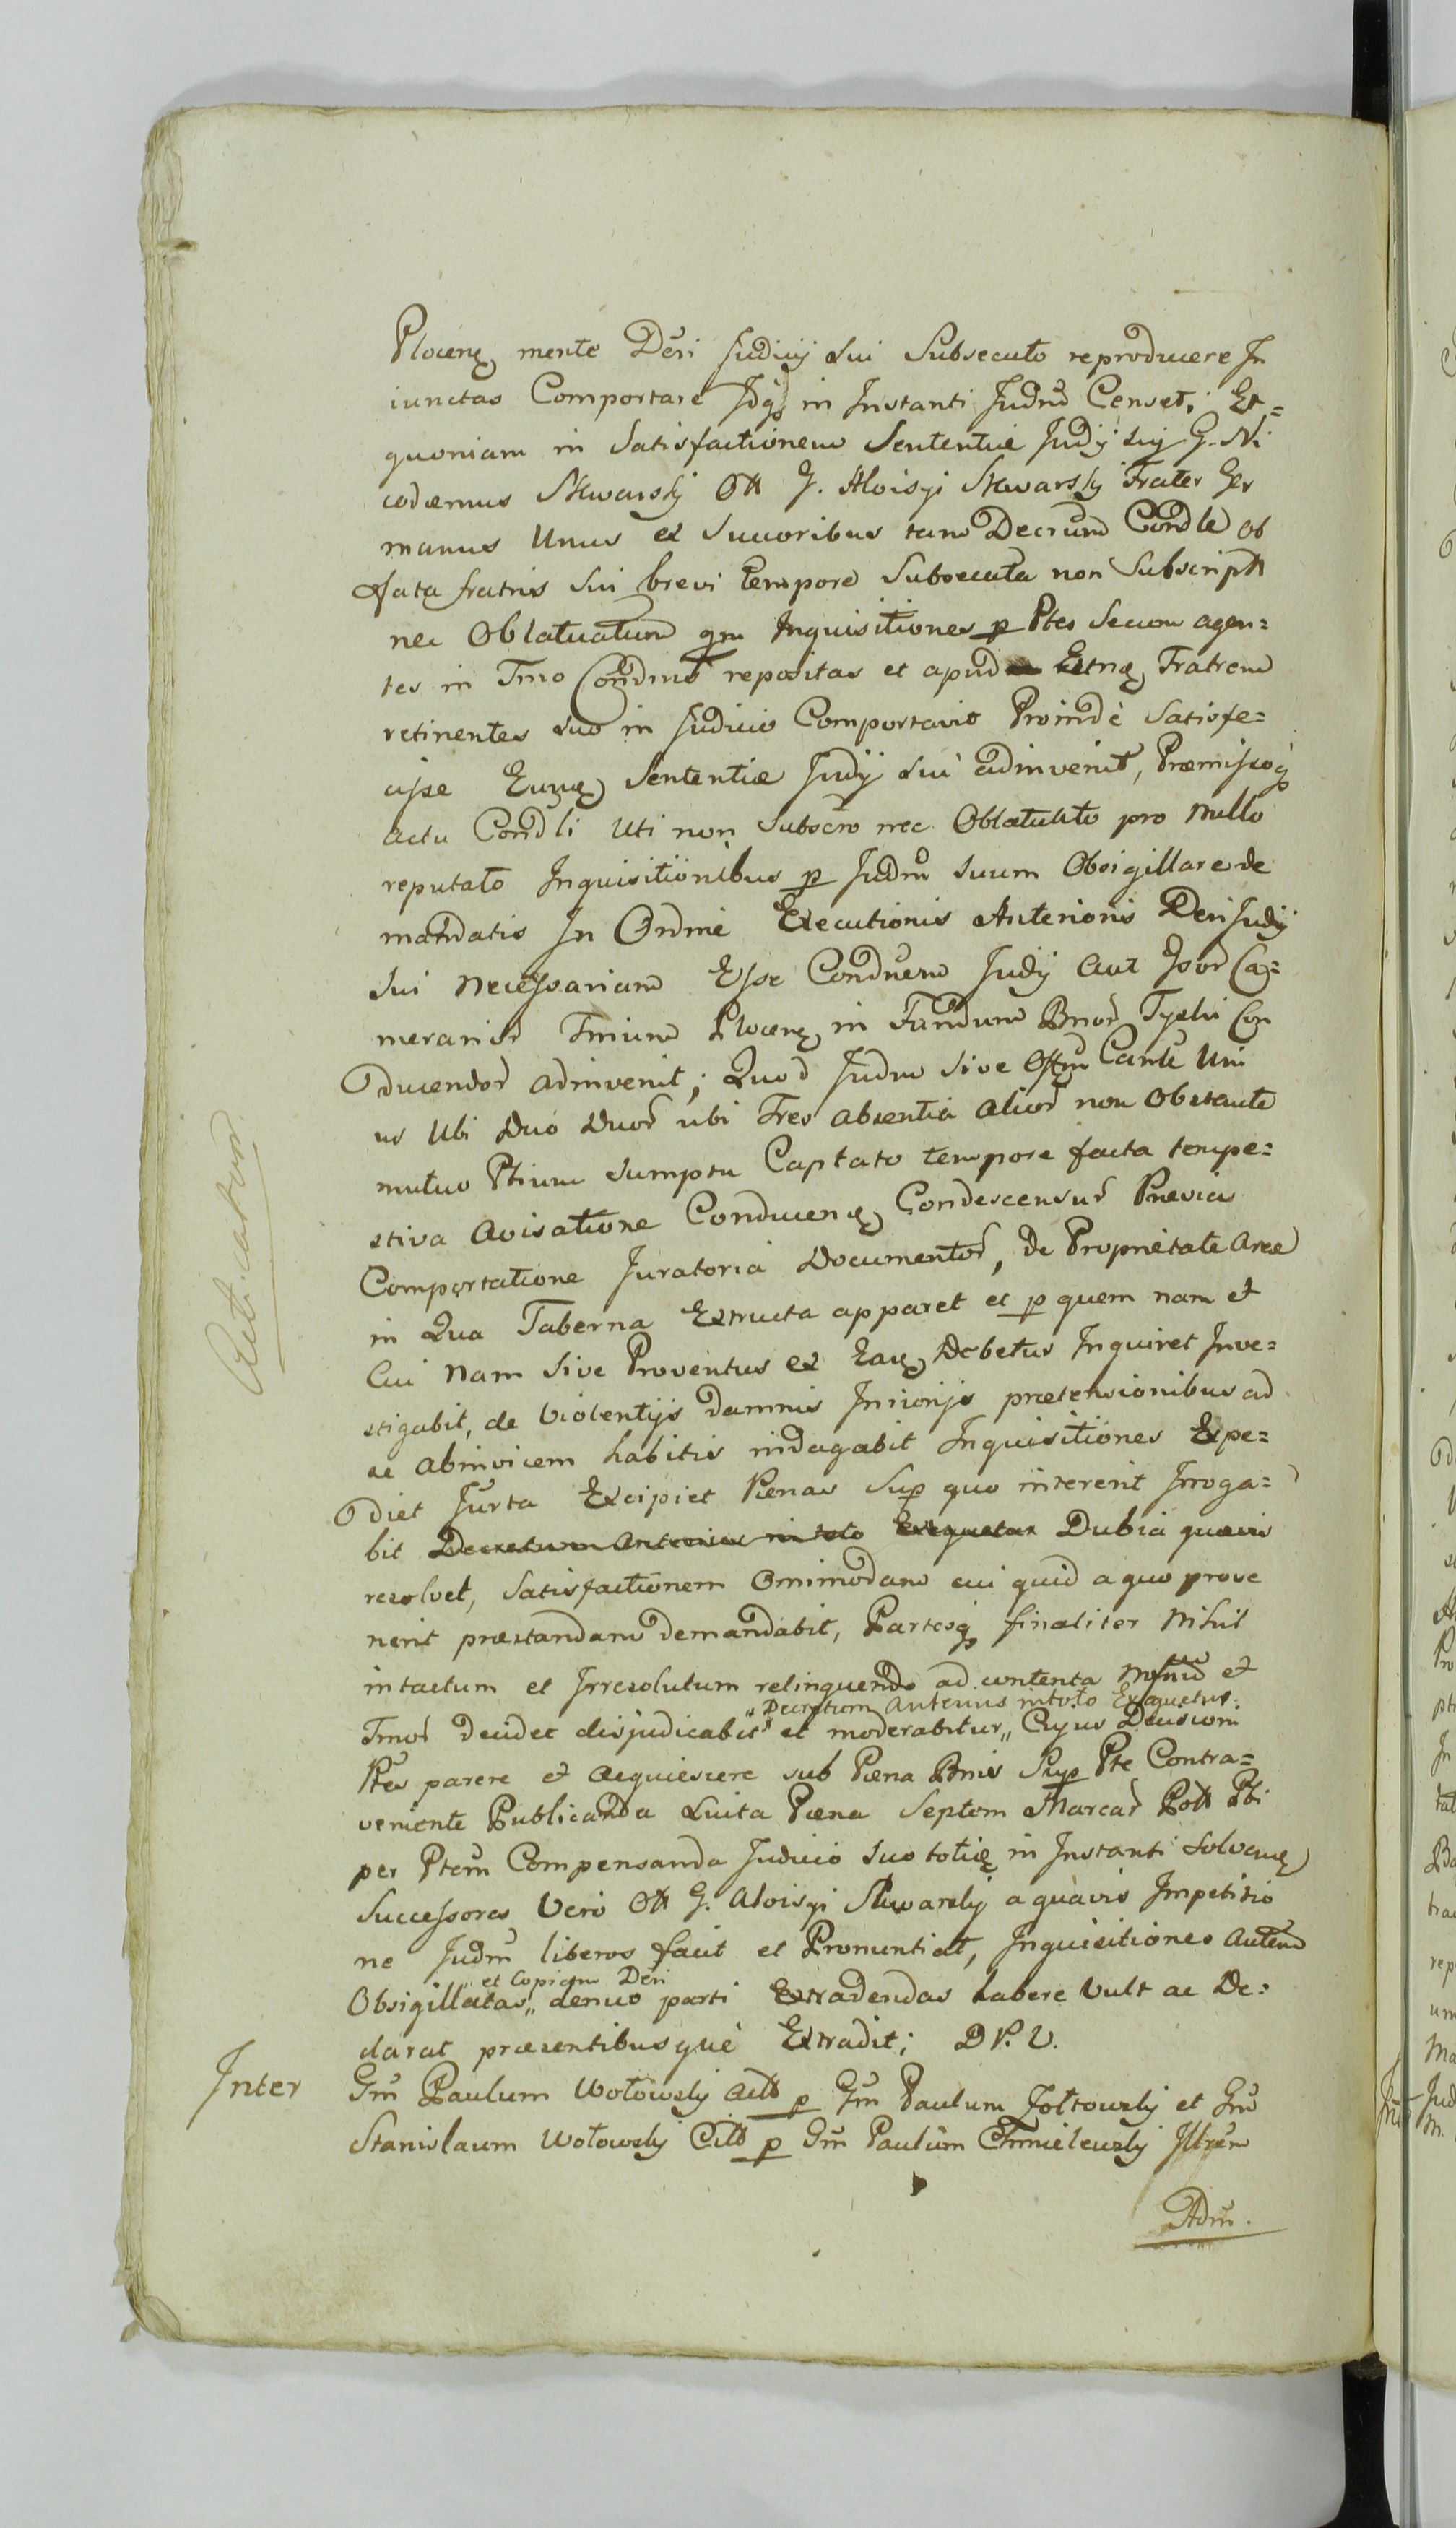 Plocens mente Dēri Judicij Sui Subsecuto reproducere In
iunctas Comportare Idq in Instanti Judm Censet; Et=
quoniam in Satisfactionem Sententiæ Judij sui G. Ni
codemus Skwarski Ott G. Aloisyi Skwarskij Frater Ger
manus Unus ex Sucoribus tam Decrum Condle ob
fata fratris Sui brevi tempore Subsecuta non Subscriptt
nec Oblatuatum qm Inquisitiones p Ptes Secum agen=
tes in Tmo Condnis repositas et apud Fratrem
retinentes suo in Judicio Comportavit Proindè Satisfe=
cisse Eunq Sententiæ Judij sui adinvenit, Præmissoq
actu Condli Uti non Subscro nec Oblatuato pro nullo
reputato Inquisitionibus p Judm Suum Obsigillare de
mandatis In Ordine Executionis Anterioris Deri Judij
Sui necessariam Esse Condnem Judij aut Ca=
merarior Tmium Plocens in Fundum Bnor Con
ducendor adinvenit; Quod Judm Sive Offm Cantle Uni
us Ubi Duo Duor ubi Tres absentia alior non Obstante
mutuo Ptium Sumptu Captato tempore facta tempe=
stiva avisatione Conducens Condescensur Prævia
Comportatione Juratoria Documentor, de Proprietate areæ
in Qua Taberna Extructa apparet et p quem nam et
Cui nam Sive Proventus ex Eaq Debetur Inquiret Inve=
stigabit, de Violentijs damnis Injurijs prætensionibus ad
ac abinvicem habitis indagabit Inquisitiones Expe=
diet Jurta Excipiet Pænas Sup quo intererit Irroga=
bit Decretum Anterius in toto Exequetur Dubia quævis
resolvet, Satisfactionem Omnimodam cui quid a quo prove
nerit præstandam demandabit, Partesq finaliter Nihil
intactum et Irresolutum relinquendo ad contenta et
„Decretum Anterius in toto Exequetur.
Tmor decidet disjudicabit et moderabitur„ Cujus Decisioni
Ptes parere et acquiescere sub Pæna Bnis Sup Pte Contra=
veniente Publicanda Luita Pæna Septem Marcar Poll Pti
per Ptem Compensanda Judicio Suo toties in Instanti Solvens
Successores Vero Ott G. Aloisyi Skwarskij a quavis Impetitio
ne Judm liberos facit et Pronuntiat, Inquisitiones autem
et Copiam Dēri
Obsigillatas„ denuo parti Extradendas habere Vult ac De=
clarat præsentibusquè Extradit; D P. V.
Inter Gm Paulum Wołowskij Actt p Gm Paulum Żołtowskij et Gm
Stanislaum Wołowskij Citt p Gm Paulum Chmielewskij Illrem
Adm.